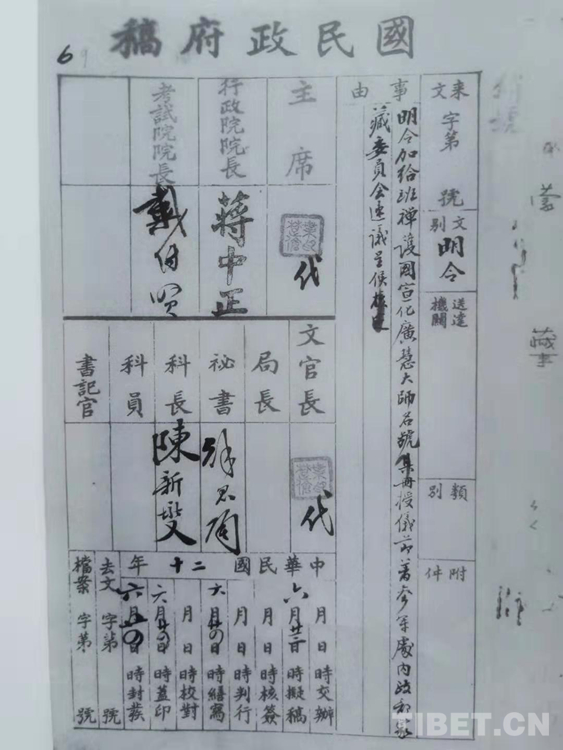 國民政府稿
來文 字第 號
文別 明令
送達機關
類別
附件
事由
明令加給班禪護國宣化廣慧大師名號其冊授儀節著參軍處內政部蒙
藏委員會速議呈候
主席 代
行政院院長 蔣中正
考試院院長 戴傳賢
文官長 代
局長
祕書
科長 陳新燮
科員
書記官
中華民國二十年
月 日 時交辦
六月 日 時擬稿
月 日 時核簽
月 日 時判行
六月 日 時繕寫
月 日 時校對
六月 日 時蓋印
六月 日 時封發
去文 字第 號
檔案 字第 號
69
藏事
TIBET.CN